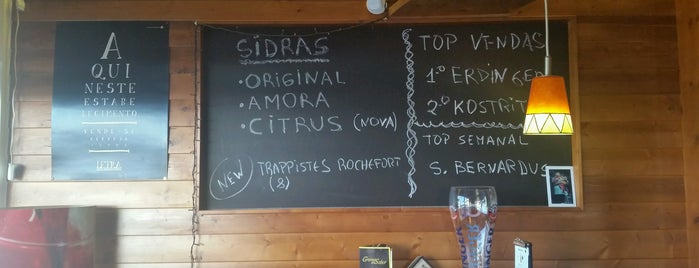 A
QUI
NESTE
ESTABE
LECIMENTO
VENDE-SE
CERVEJA
LETRA
SIDRAS
•ORIGINAL
•AMORA
•CITRUS (NOVA)
NEW
TRAPPISTES ROCHEFORT
(8)
TOP VENDAS
1º ERDINGER
2º KOSTRIT
TOP SEMANAL
S. BERNARDUS